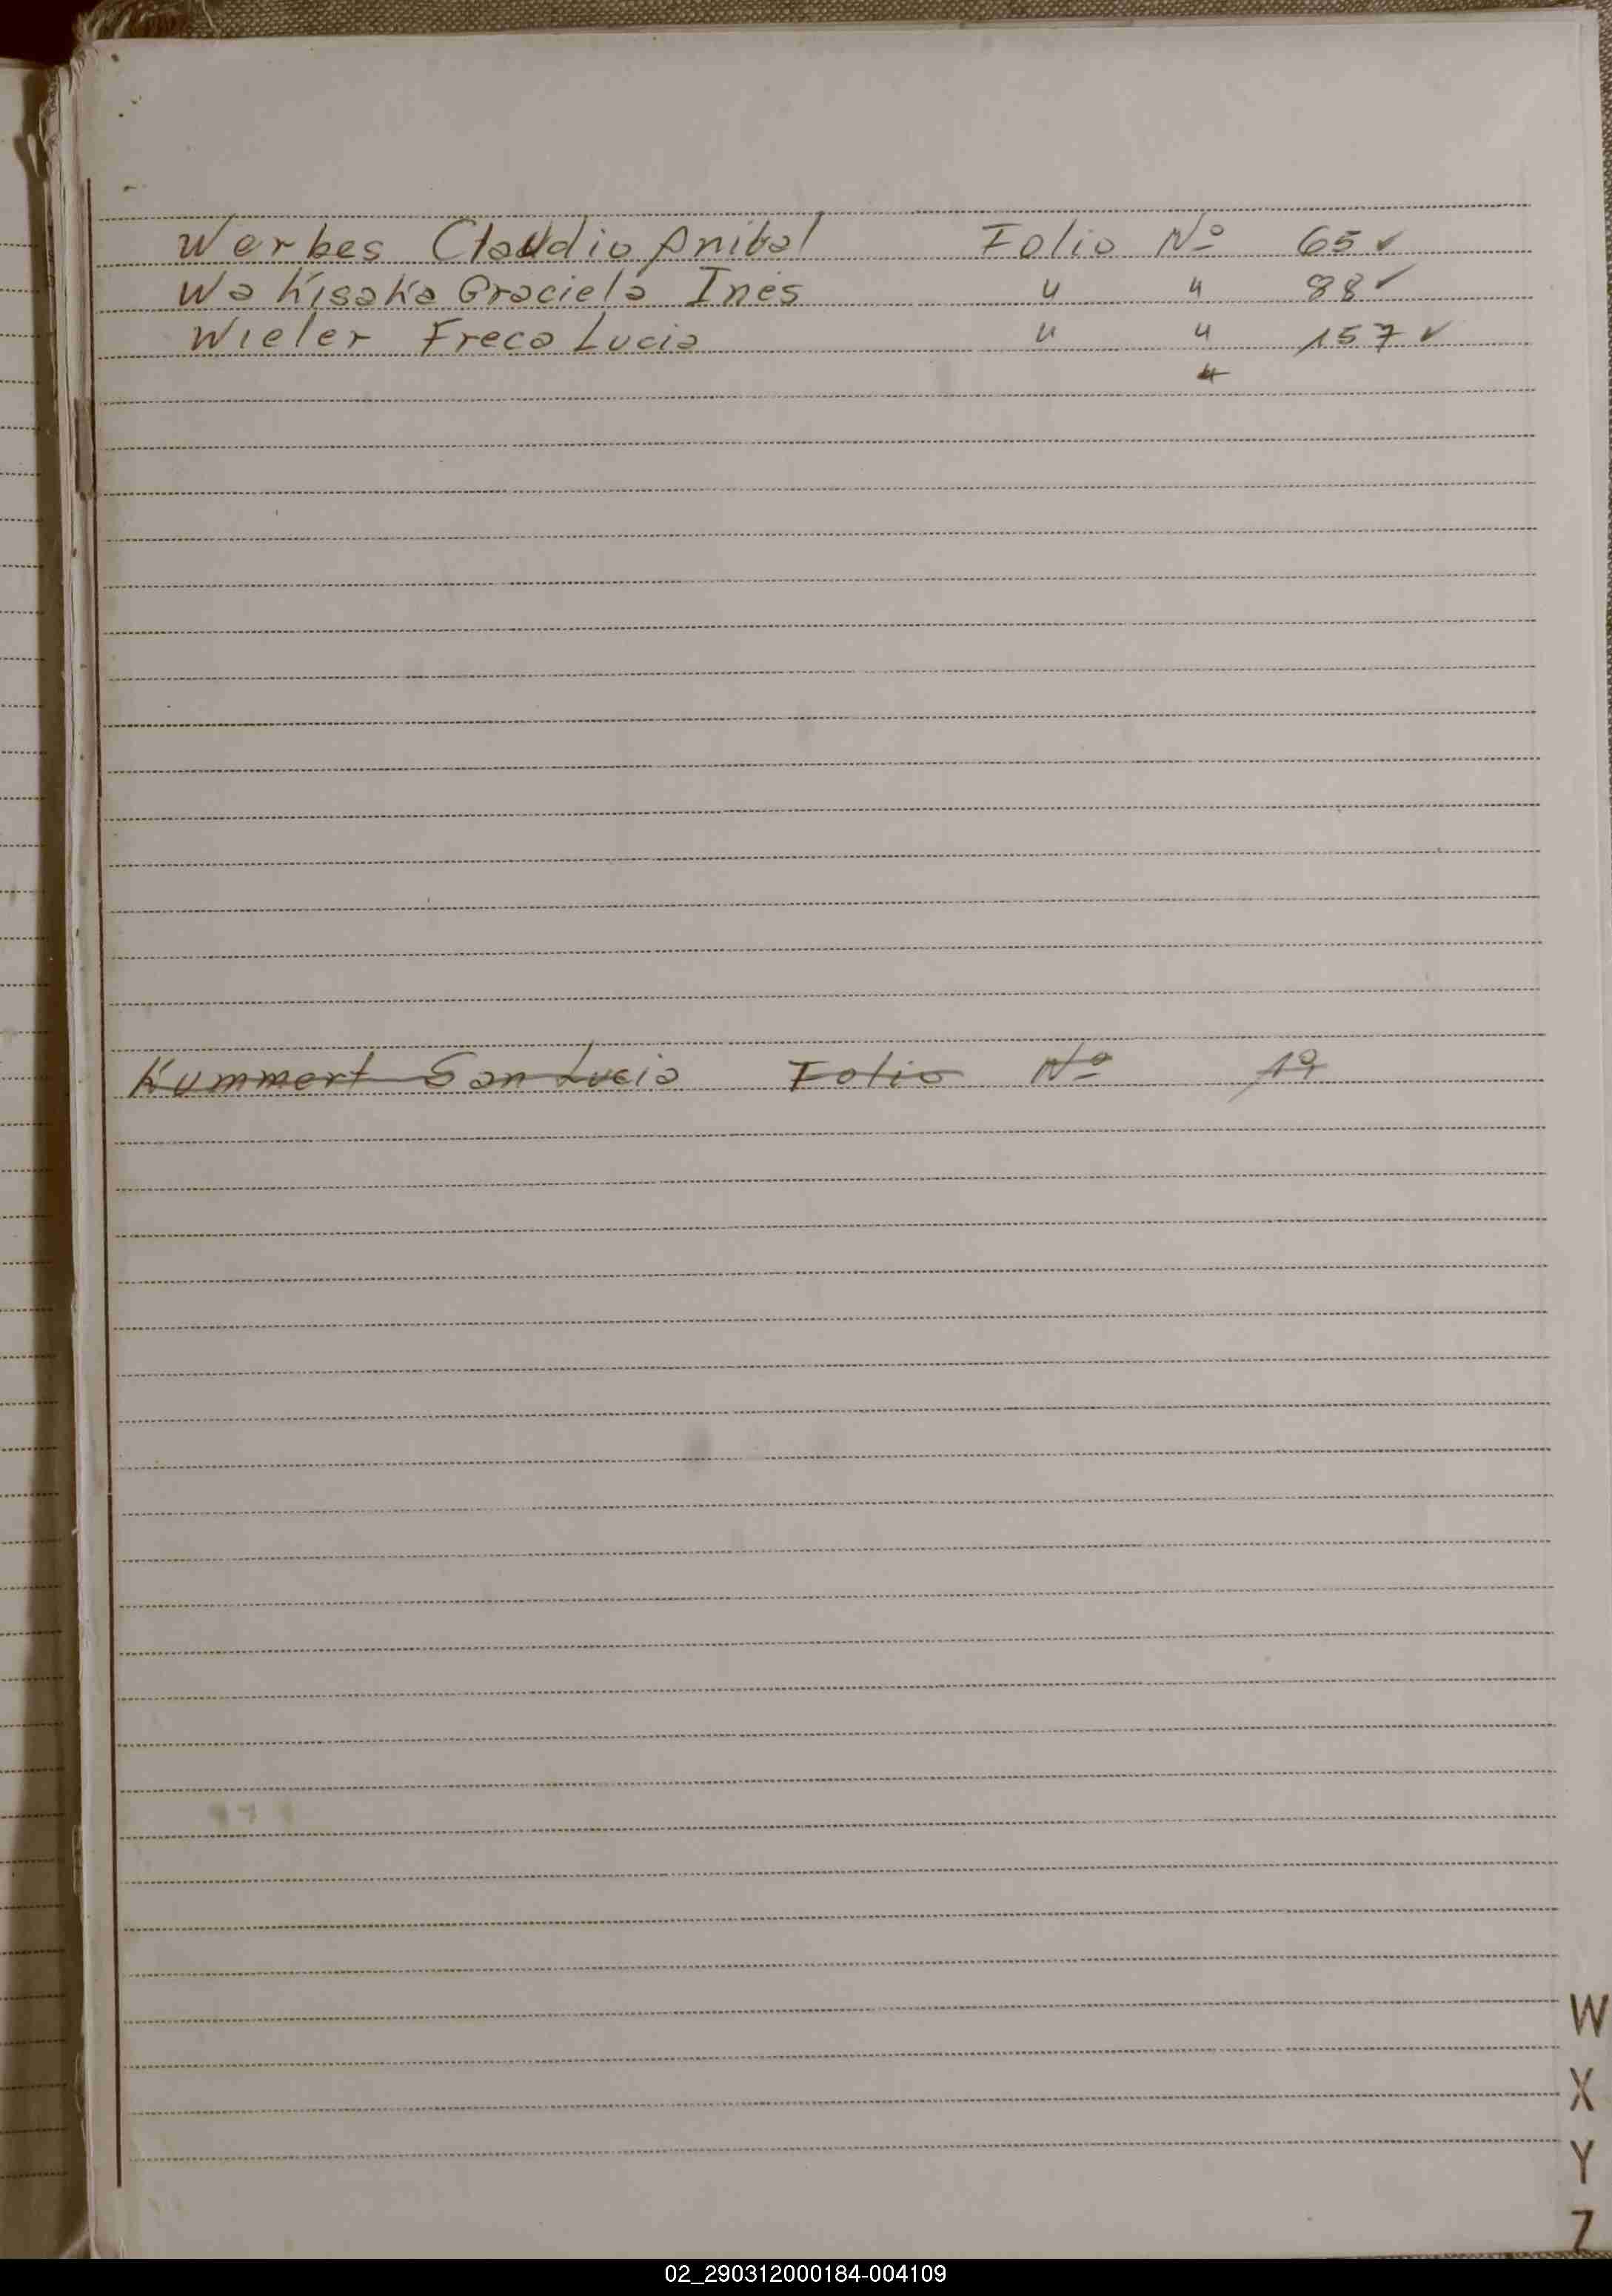 Werbes Claudio Anibal Folio Nº 65 ✓
Wakisaka Graciela Ines " " 88 ✓
Wieler Freca Lucia " " 157 ✓
"
Kummert San Lucia Folio Nº
W
X
Y
Z
02_290312000184-004109